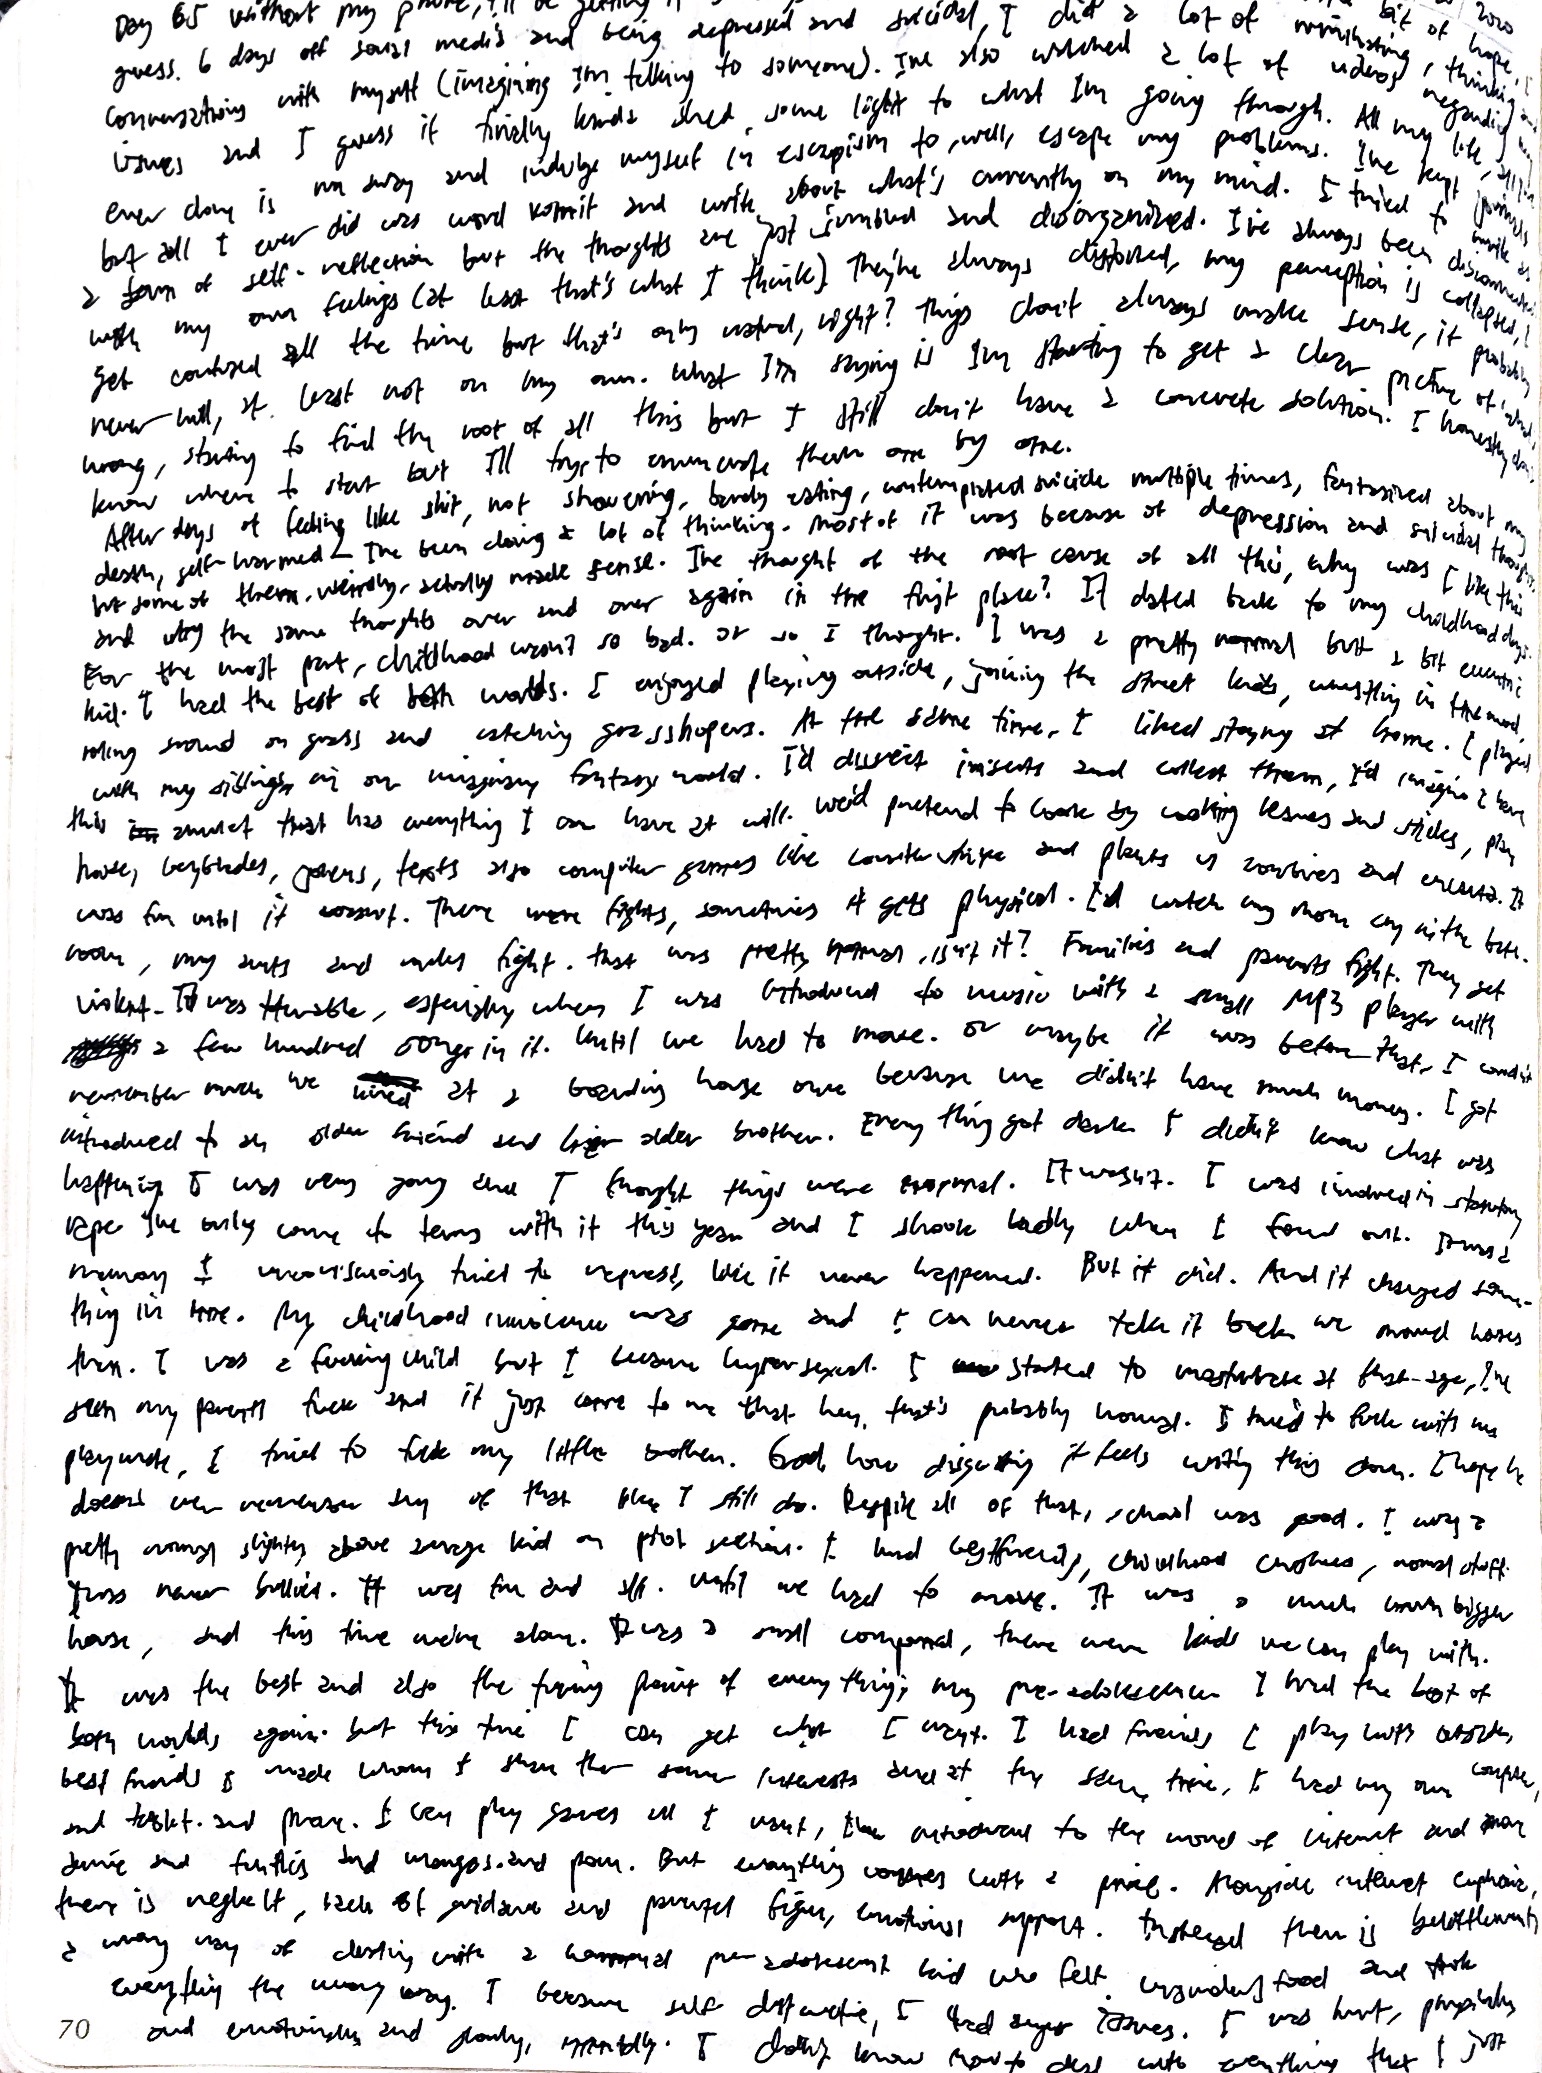 Day 65 without my phone, I'll be getting it bit of hope, I 2020
guess. 6 days off social media and being depressed and suicidal, I did a lot of ruminating, thinking and
conversations with myself (imagining I'm talking to someone). I've also watched a lot of videos regarding my
issues and I guess it finally kinda shed some light to what I'm going through. All my life, all I've
ever done is run away and indulge myself in escapism to, well, escape my problems. I've kept journals
but all I ever did was word vomit and write about what's currently on my mind. I tried to write as
a form of self-reflection but the thoughts are just jumbled and disorganized. I've always been disconnected
with my own feelings (at least that's what I think) They're always distorted, my perception is collapsed, I
get confused all the time but that's only natural, right? Things don't always make sense, it probably
never will, at least not on my own. What I'm saying is I'm starting to get a clear picture of what's
wrong, starting to find the root of all this but I still don't have a concrete solution. I honestly don't
know where to start but I'll try to enumerate them one by one.
After days of feeling like shit, not showering, barely eating, contemplated suicide multiple times, fantasized about my
death, self-harmed – I've been doing a lot of thinking. Most of it was because of depression and suicidal thoughts
but some of them, weirdly, actually made sense. I've thought of the root cause of all this, why was I like this
and why the same thoughts over and over again in the first place? It dated back to my childhood days.
For the most part, childhood wasn't so bad. Or so I thought. I was a pretty normal but a bit eccentric
kid. I had the best of both worlds. I enjoyed playing outside, joining the street kids, wrestling in the mud,
rolling around on grass and catching grasshopers. At the same time, I liked staying at home. I played
with my siblings in our imaginary fantasy world. I'd dissect insects and collect them, I'd imagine I have
this amulet that has everything I can have at will. We'd pretend to cook by cooking leaves and sticks, play
house, beyblades, pokers, texts also computer games like counter strike and plants vs zombies and It
was fun until it wasn't. There were fights, sometimes it gets physical. I'd watch my mom cry in the bath-
room, my aunts and uncles fight. That was pretty normal, isn't it? Families and parents fight. They get
violent. It was tolerable, especially when I was introduced to music with a small MP3 player with
a few hundred songs in it. Until we had to move. Or maybe it was before that, I couldn't
remember much we lived at a boarding house once because we didn't have much money. I got
introduced to an older friend and her older brother. Everything got dark I didn't know what was
happening I was very young and I thought things were normal. It wasn't. I was involved in statutory
rape I've only come to terms with it this year and I shook badly when I found out. It was a
memory I unconsciously tried to repress, like it never happened. But it did. And it changed some-
thing in me. My childhood innocence was gone and I can never take it back we moved houses
then. I was a fucking child but I became hypersexual. I started to masturbate at that age, I've
seen my parents fuck and it just came to me that hey, that's probably normal. I tried to fuck with my
playmate, I tried to fuck my little brother. God, how disgusting it feels writing this down. I hope he
doesn't even remember any of that like I still do. Despite all of that, school was good. I was a
pretty average slightly above average kid on pilot section. I had bestfriends, childhood crushes, normal stuff.
I was never bullied. It was fun and all. Until we had to move. It was a much much bigger
house, and this time we're alone. It was a small compound, there were kids we can play with.
It was the best and also the turning point of everything; my pre-adolescence I had the best of
both worlds again. But this time I can get what I want. I had friends I play with outside,
best friends I made whom I share the same interests and at the same time, I had my own computer,
and tablet. and phone. I can play games all I want, I was introduced to the world of internet and
anime and fanfics and mangas and porn. But everything comes with a price. Alongside internet euphoria,
there is neglect, lack of guidance and parental figure, emotional support. Instead there is belittlement,
a wrong way of dealing with a hormonal pre-adolescent kid who felt misunderstood and took
everything the wrong way. I became self destructive, I had anger issues. I was hurt, physically
and emotionally and slowly, mentally. I didn't know how to deal with everything that I just
70